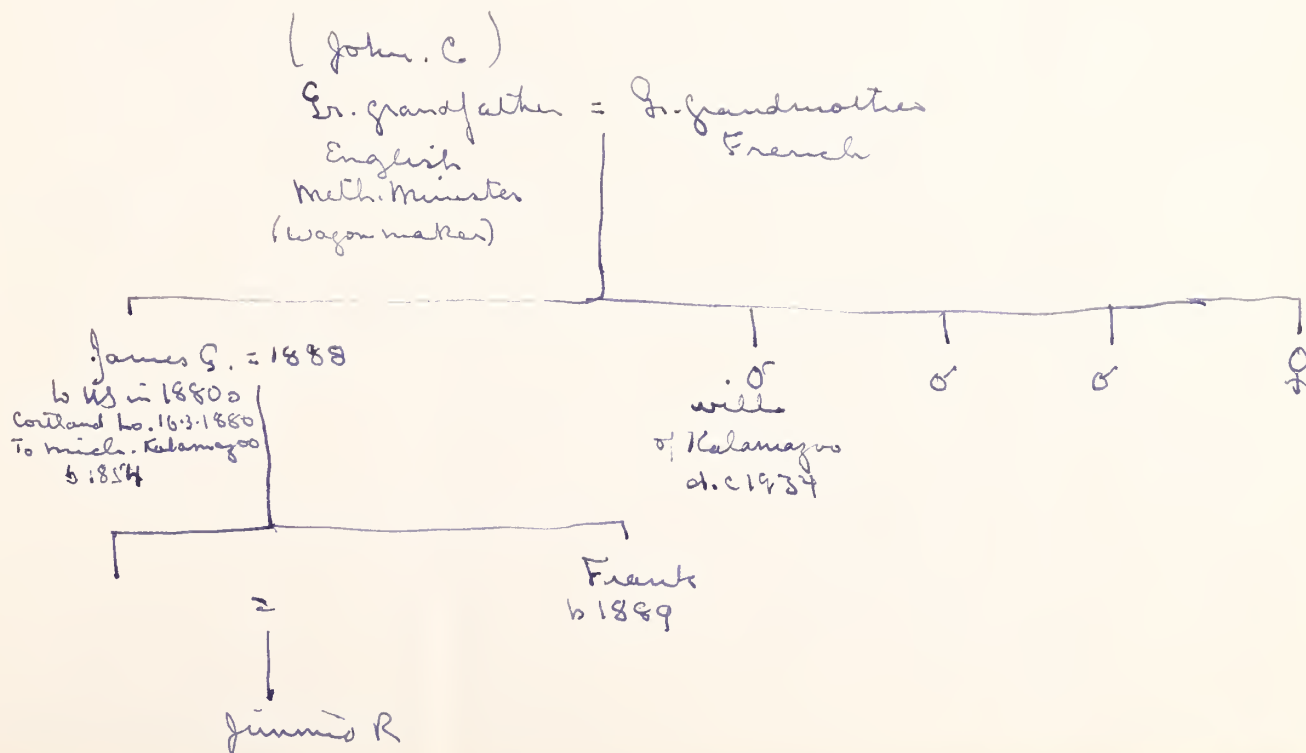 (John. C)
Gr. grandfather = Gr. grandmother
English
French
Meth. Minister
(wagon maker)
James G. = 1888
to US in 1880s
Cortland Co. 16.3.1880
To Mich. Kalamazoo
b 1854
♂ ♂ ♂ ♀
will
of Kalamazoo
d. c 1934
=
Frank
b 1889
Jimmie R